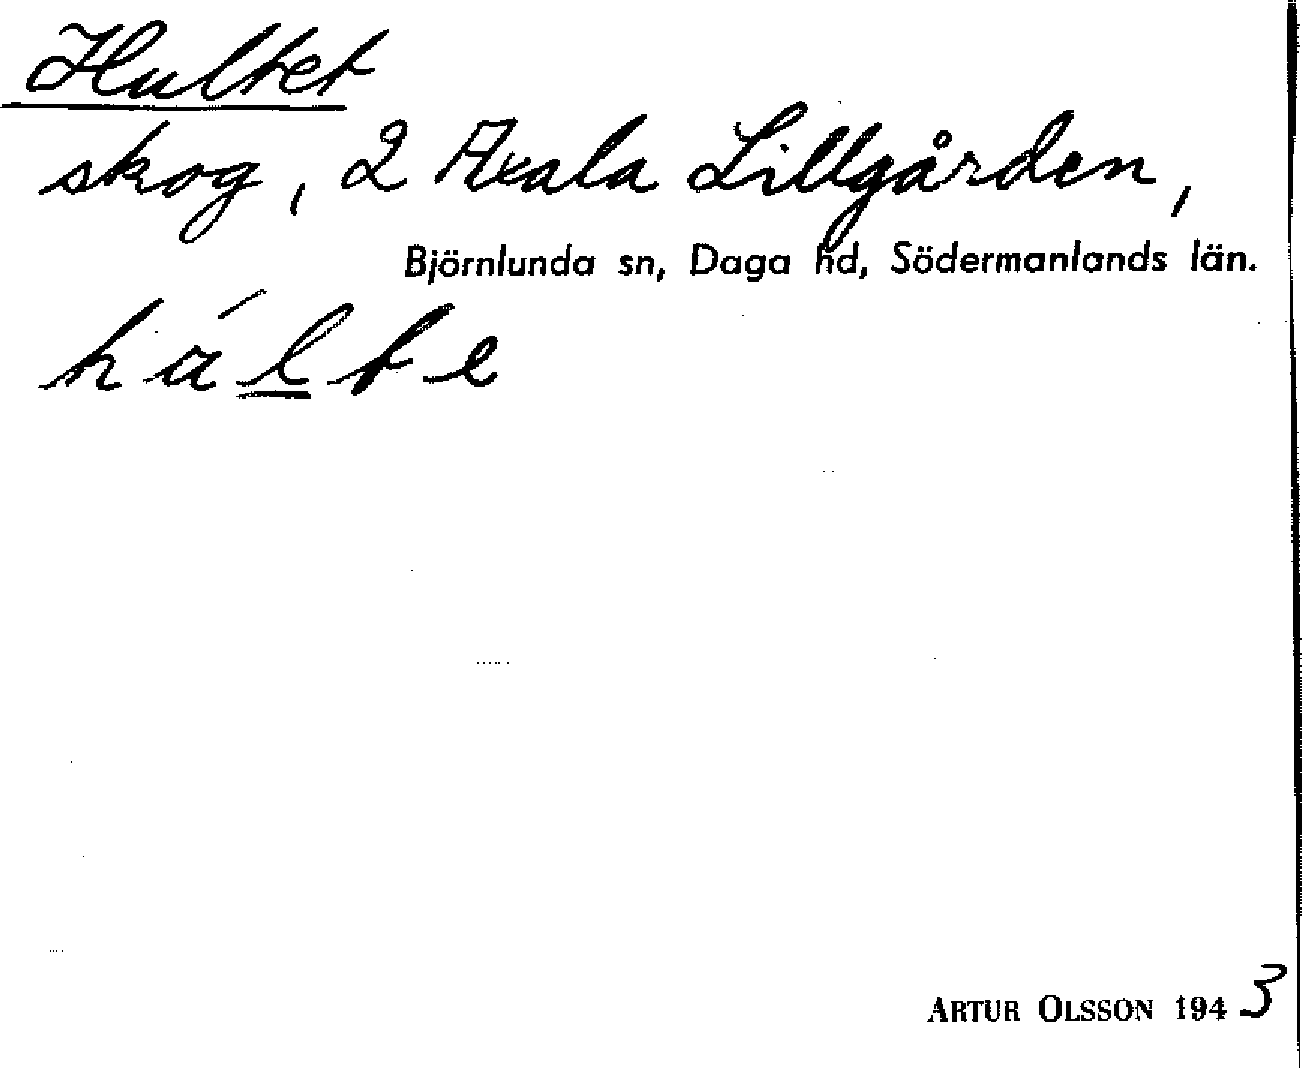 Hultet
skog, 2 Axala Lillgården,
Björnlunda sn, Daga hd, Södermanlands län.
hálte
ARTUR OLSSON 1943